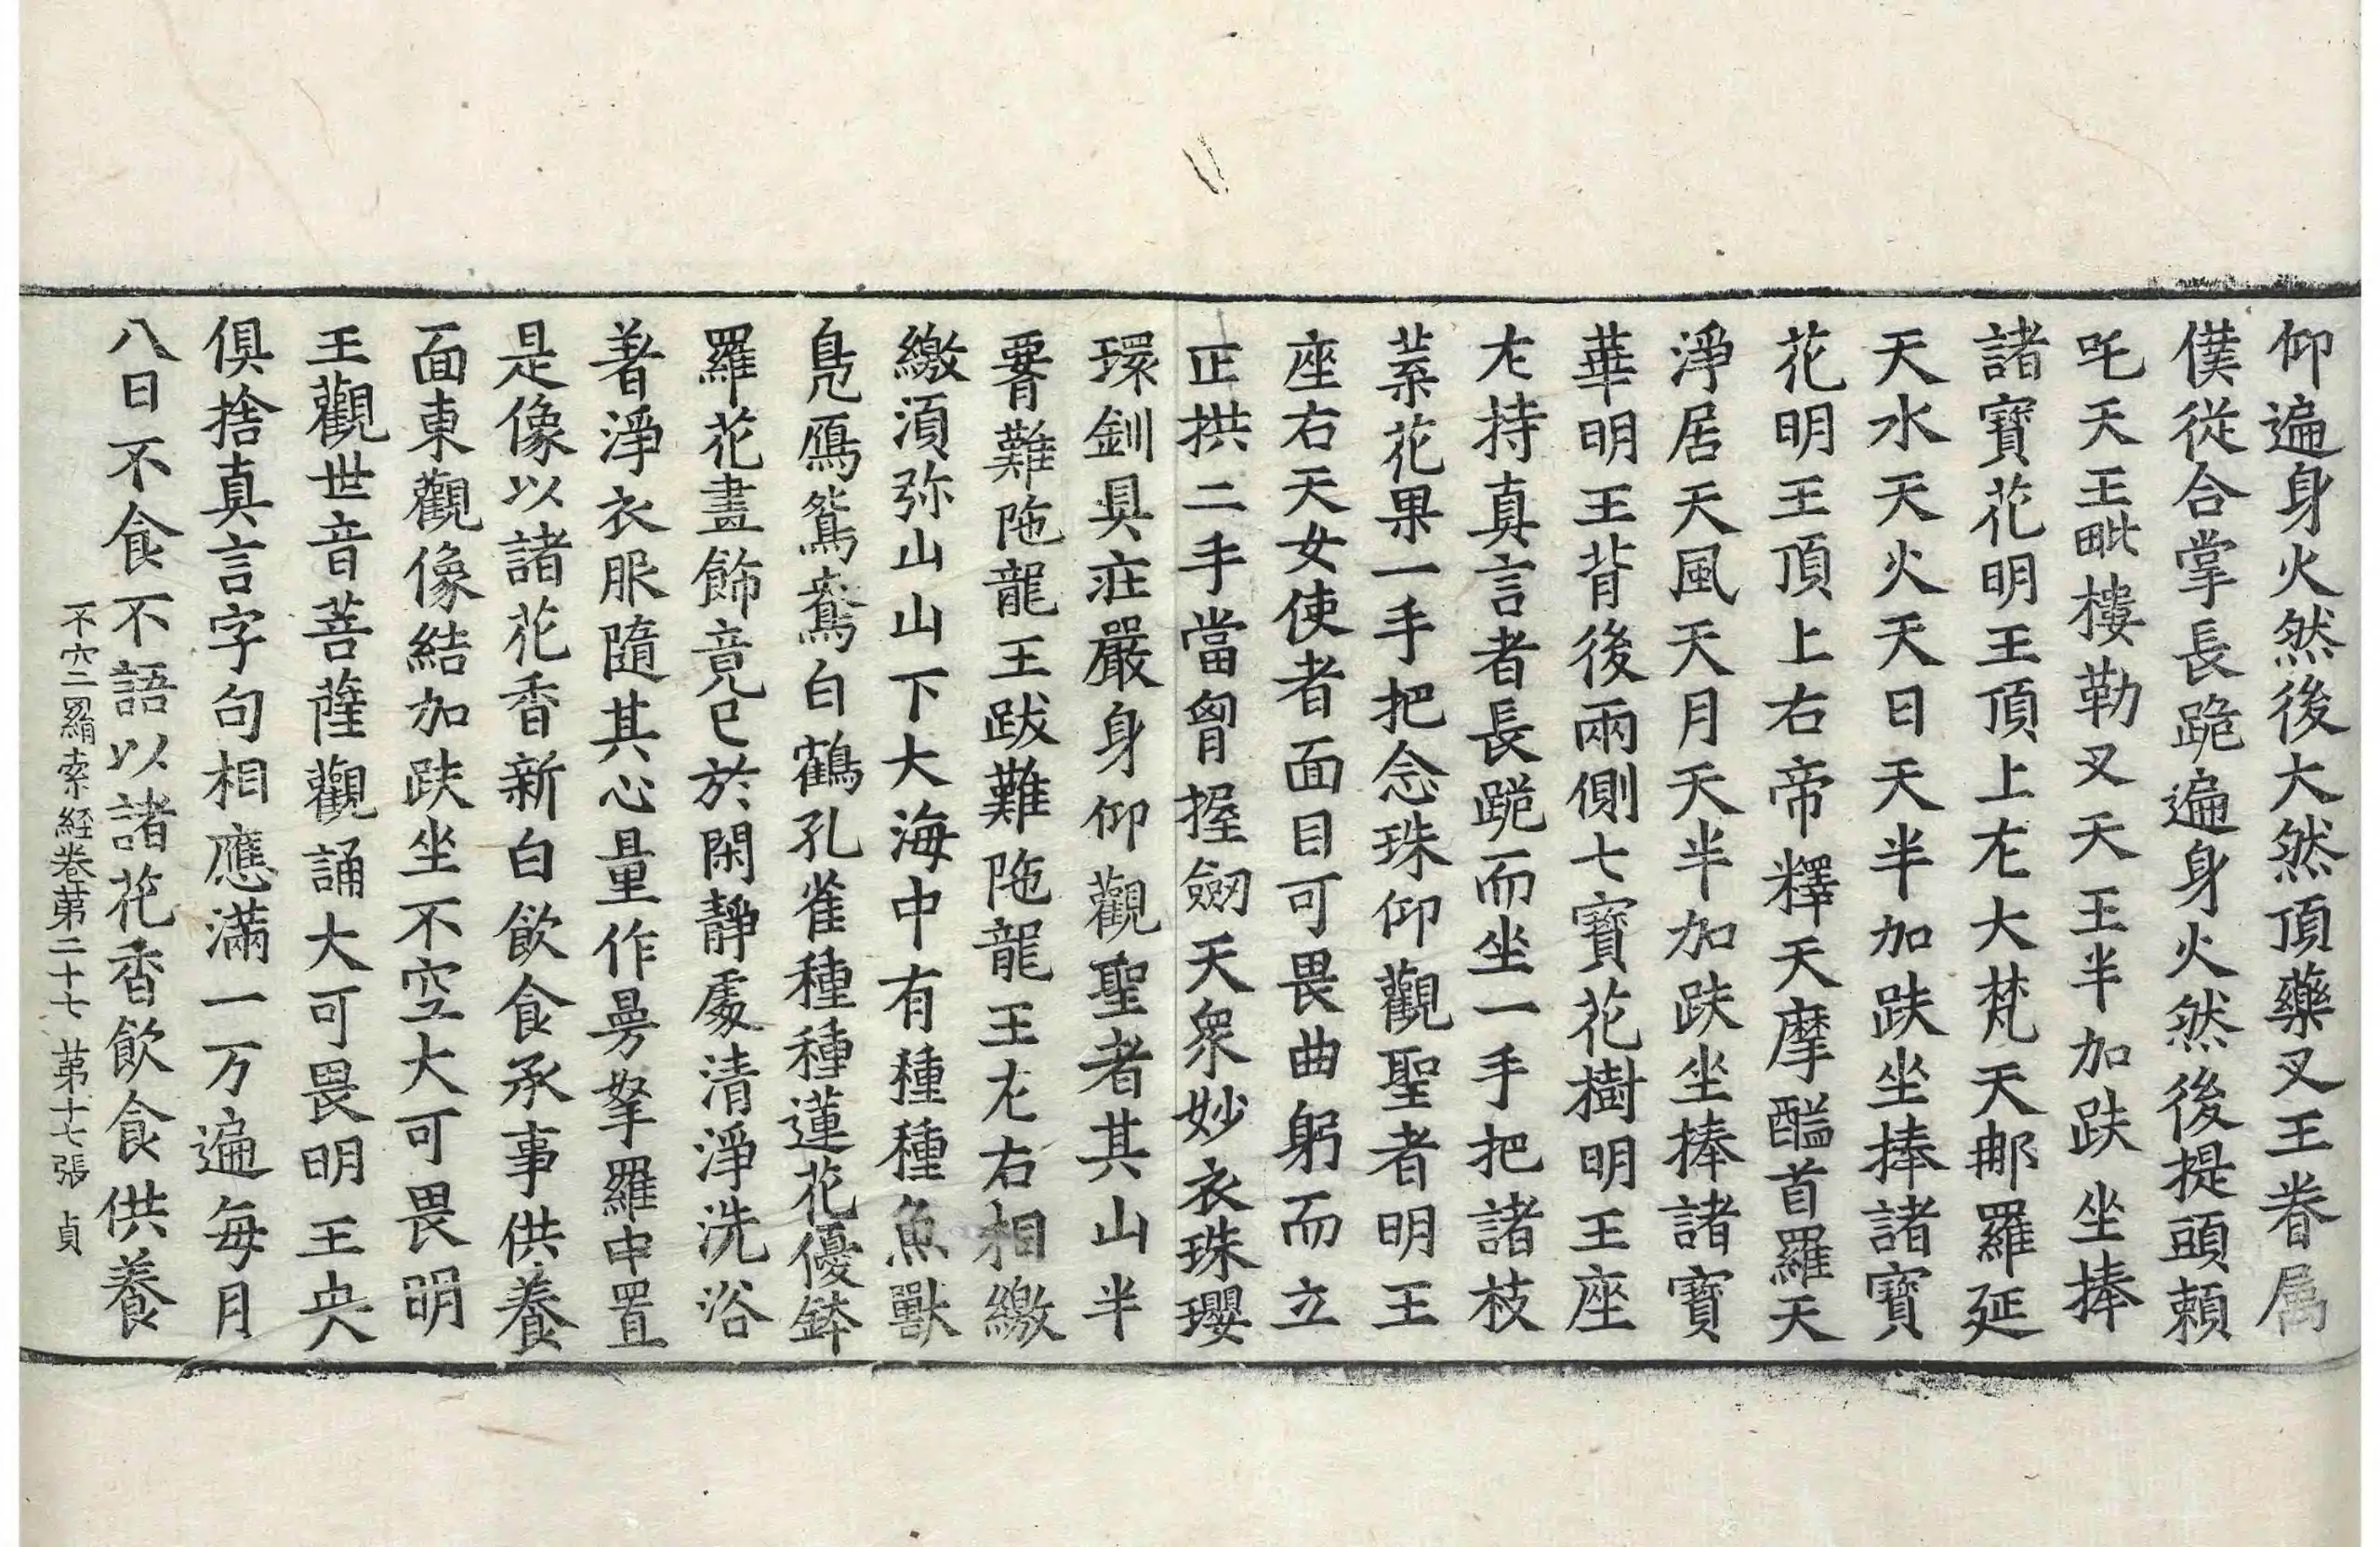 仰遍身火然後大然頂藥叉王眷属
僕從合掌長跪遍身火然後提頭頼
吒天王毗樓勒叉天王半加趺坐捧
諸寶花明王頂上左大梵天那羅延
天水天火天日天半加趺坐捧諸寶
花明王頂上右帝釋天摩醯首羅天
淨居天風天月天半加趺坐捧諸寶
華明王背後兩側七寶花樹明王座
左持真言者長跪而坐一手把諸枝
葉花果一手把念珠仰觀聖者明王
座右天女使者面目可畏曲躬而立
正拱二手當胷握劒天衆妙衣珠瓔
環釧具莊嚴身仰觀聖者其山半
䏚難陁龍王跋難陁龍王左右相繳
繳湏弥山山下大海中有種種魚獸
鳬鴈鴛鴦白鶴孔雀種種蓮花優鉢
羅花畫飾竟已於閑静處清淨洗浴
著淨衣服隨其心量作曼拏羅中置
是像以諸花香新白飲食承事供養
面東觀像結加趺坐不空大可畏明
王觀世音菩薩觀誦大可畏明王央
俱捨真言字句相應滿一万遍每月
八日不食不語以諸花香飲食供養
不空罥索経卷苐二十七 苐十七張 貞